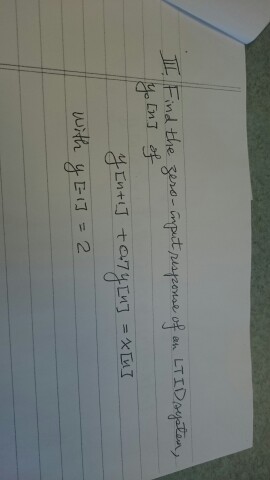 III. Find the zero-input response of an LTID system,
y₀[n] of
y[n+1] + 0.7y[n] = x[n]
with y[-1] = 2